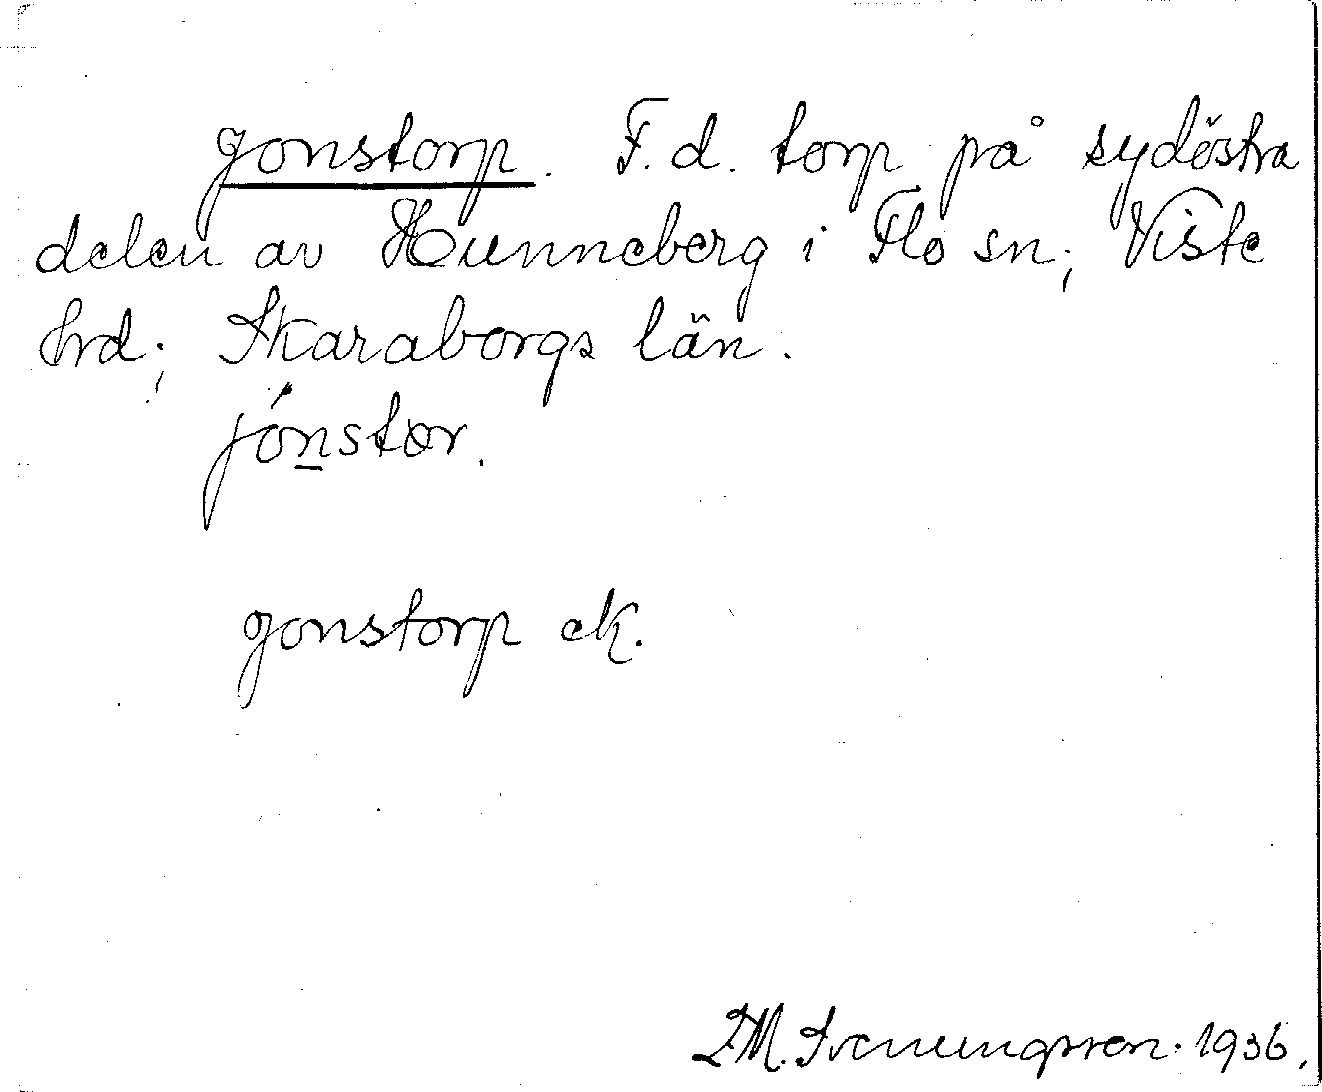 Jonstorp. F.d. torp på sydöstra
delen av Hunneberg i Flo sn; Viste
hrd; Skaraborgs län.
jónstor.
Jonstorp ek.
Svenungsson. 1936.